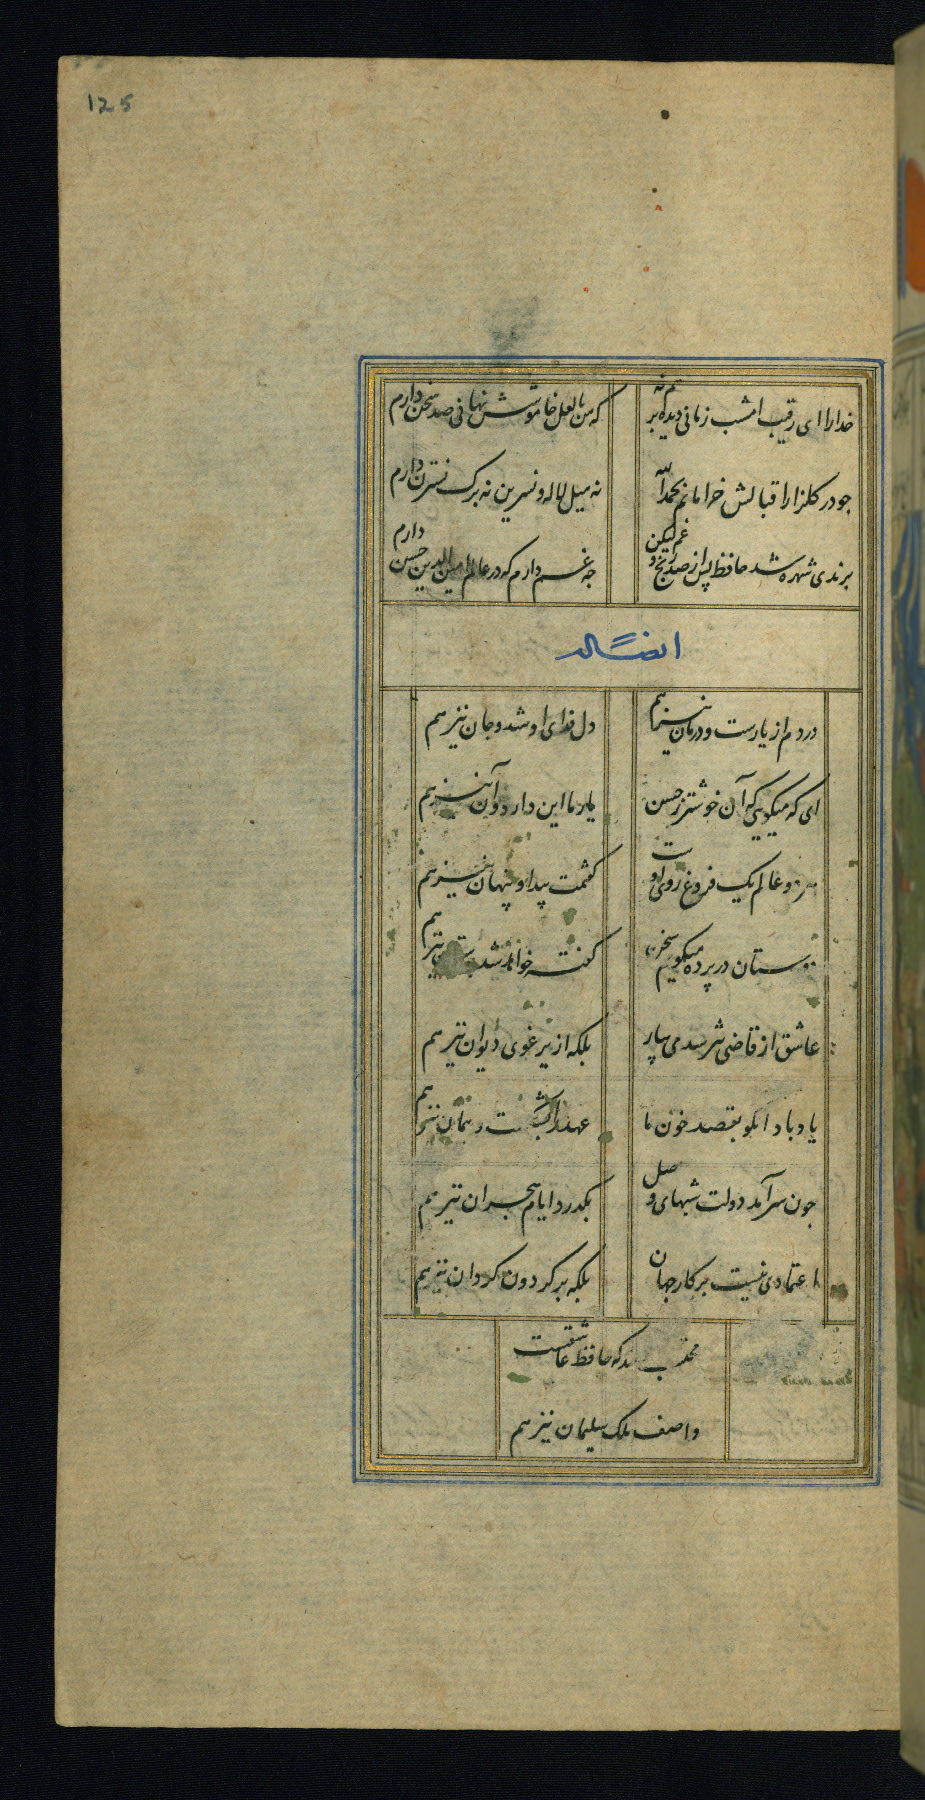 125
خدارا ای رقیب امشب زمانی دیده بر هم نه
که من با لعل خاموشش نهانی صد سخن دارم
جو در کلزار اقبالش خرامانم بحمدالله
نه میل لاله و نسرین نه برک نسترن دارم
برندی شهره شد حافظ پس از صد رنج و غم لیکن
جه غم دارم که در عالم امین الدین حسن دارم
ایضاً له
دردم از یارست و درمان نیز هم
دل فدای او شد و جان نیز هم
ای که میکویی که آن خوشتر ز حسن
یار ما این دارد و آن نیز هم
هر دو عالم یک فروغ روی اوست
کفتمت پیدا و پنهان نیز هم
دوستان در پرده میکویم سخن
کفته خواهد شد بدستان نیز هم
عاشق از قاضی نترسد می بیار
بلکه از یرغوی دیوان نیز هم
یاد باد انکو بقصد خون ما
عهد را بشکست و پیمان نیز هم
جون سر آمد دولت شبهای وصل
بکذرد ایام هجران نیز هم
اعتمادی نیست بر کار جهان
بلکه بر کردون کردان نیز هم
محتسب داند که حافظ عاشقست
واصف ملک سلیمان نیز هم